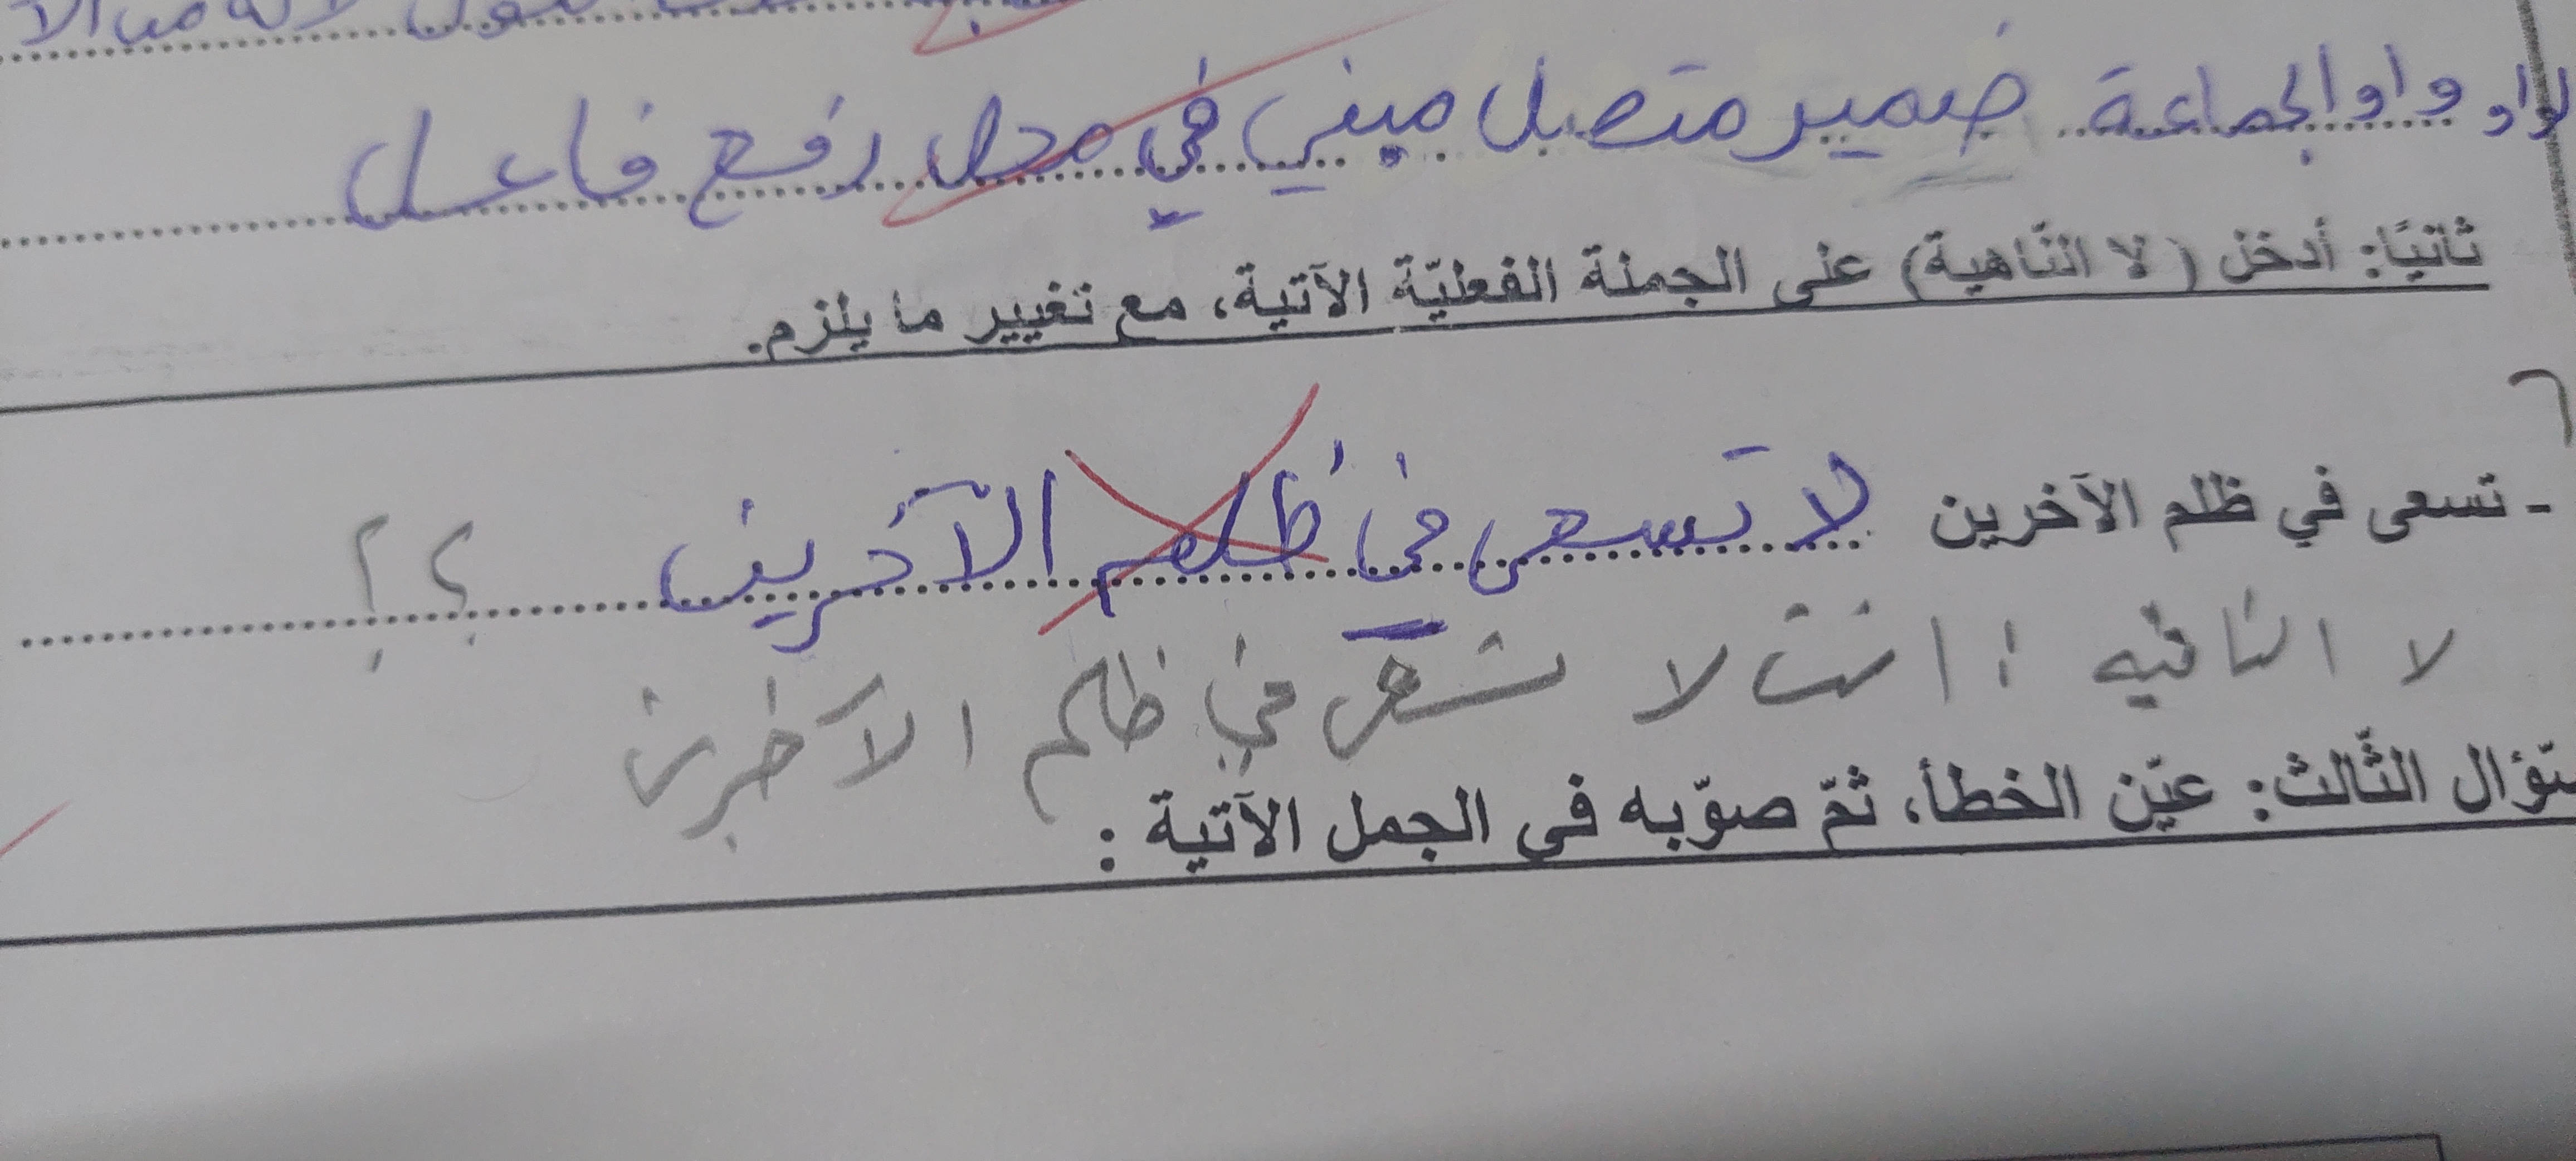 واو الجماعة ضمير متصل مبني في محل رفع فاعل
ثانيًا: أدخل ( لا النّاهية) على الجملة الفعليّة الآتية، مع تغيير ما يلزم.
- تسعى في ظلم الآخرين لا تسعى في ظُلم الآخرين ؟؟
لا النافيه : انت لا تسعى في ظلم الآخرين
ؤال الثّالث: عيّن الخطأ، ثمّ صوّبه في الجمل الآتية :